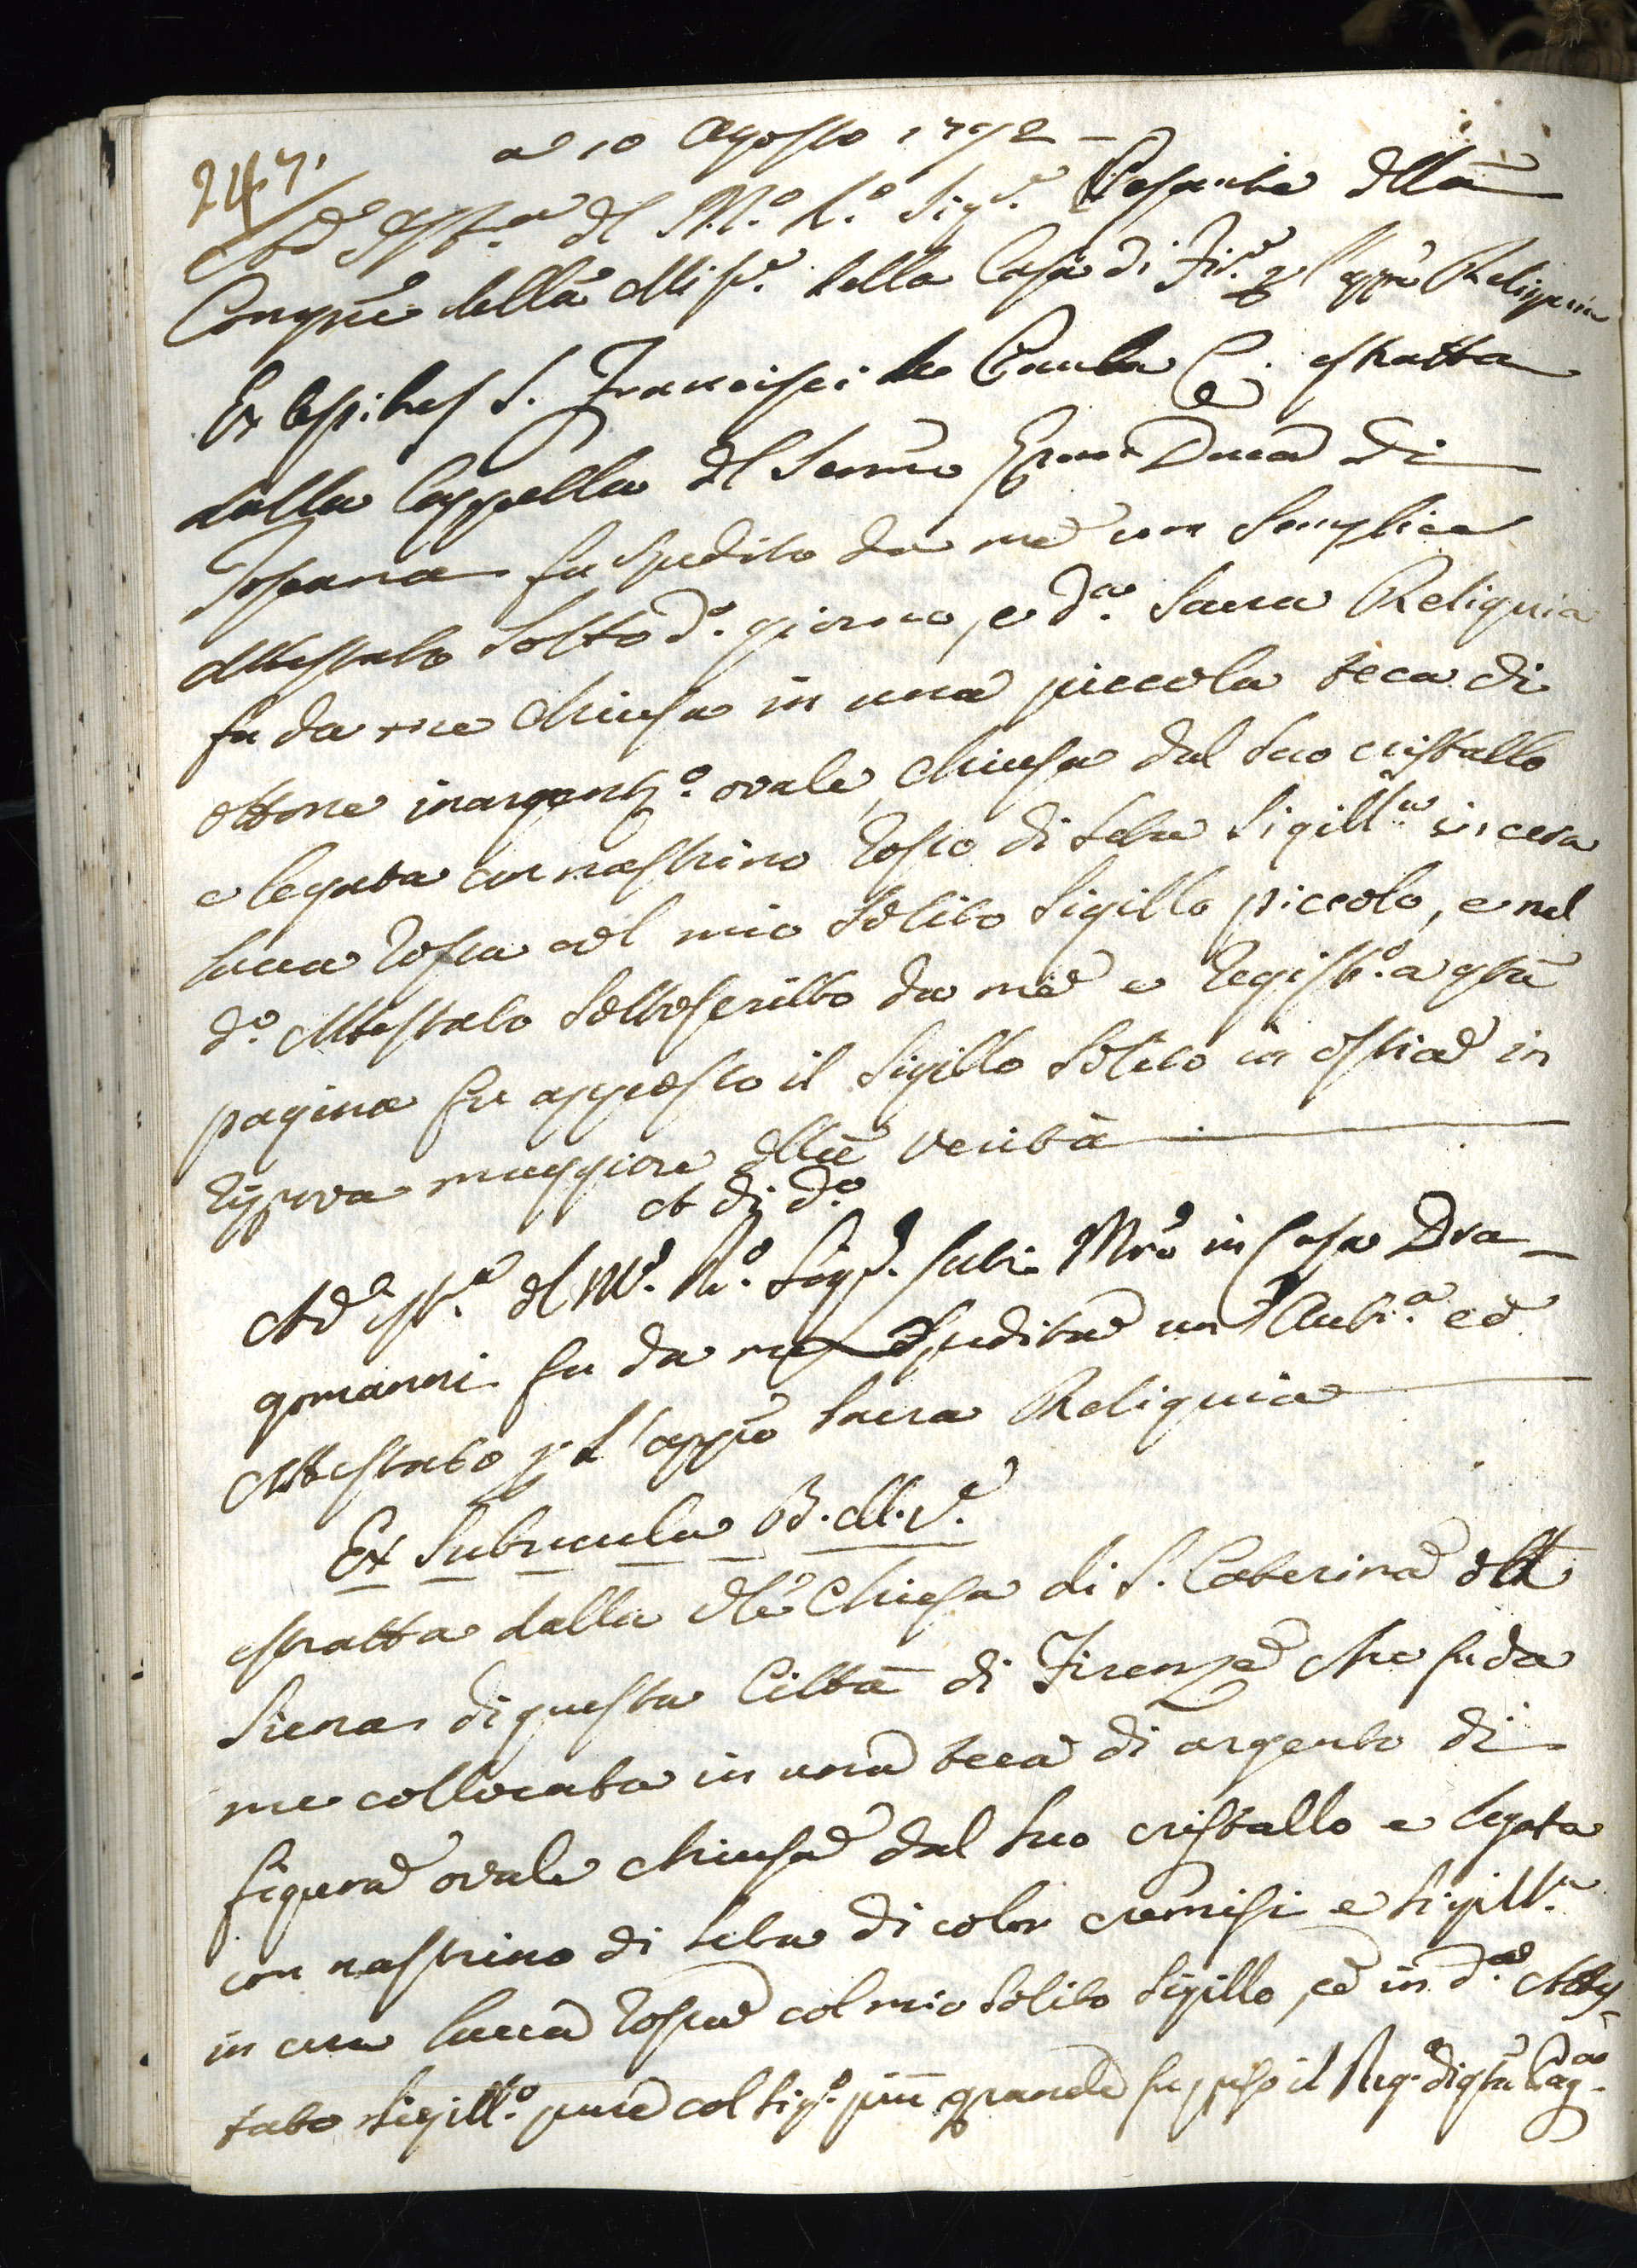 247.
a 10 Agosto 1792 –
Ad Ist.a del M.o R.o Sig.r della
Congne della Mis.e della Casa di Fir.e p l'appa Reliquia
Ex S. Francisci de Paula C. estratta
dalla Cappella del Sermo Gran Duca di
Toscana fu spedito da me un semplice
Attestato sotto d.o giorno, e d.a Sacra Reliquia
fu da me chiusa in una piccola teca di
ottone inargent.o ovale, chiusa dal suo cristallo
e legata con nastrino rosso di seta Sigill.a in cera
lacca rossa col mio solito Sigillo piccolo, e nel
d.o Attestato sottoscritto da me e Regist.o a qta
pagina fu apposto il Sigillo solito in ostia in
riprova maggiore della verità
A di d.o
Ad ist.a del M.o R.o Sig.r Mro in Casa Dra-
gomanni fu da me spedita un Aut.a ed
Attestato p l'appa Sacra Reliquia
Ex Subucula B.M.V.
estratta dalla Chiesa di S. Caterina della
Siena di questa Città di Firenze che fu da
me collocata in una teca di argento di
figura ovale chiusa dal suo cristallo e legata
con nastrino di seta di color cremisi e sigill.a
in cera lacca rossa col mio solito Sigillo, ed in d.o Attes-
tato sigill.o pure col sig.o più grande fu il Reg.o di qta Pag.